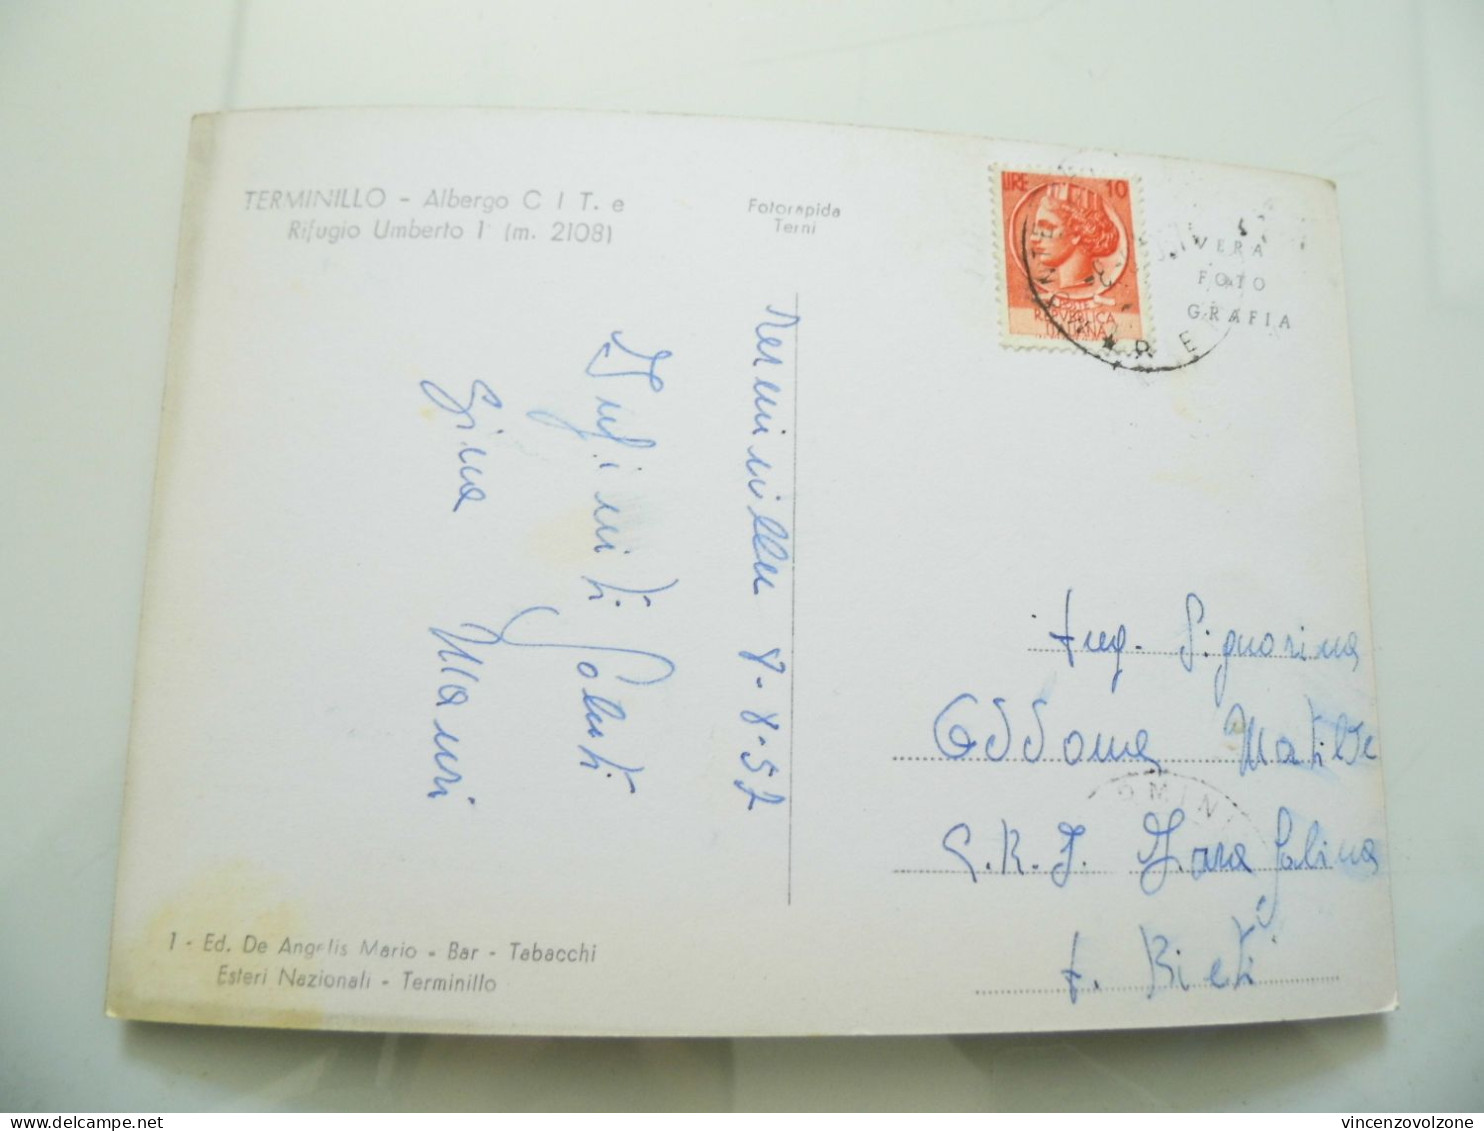 TERMINILLO - Albergo C I T. e
Rifugio Umberto I° (m. 2108)
Fotorapida
Terni
LIRE 10
REPVBBLICA
ITALIANA
VERA
FOTO
GRAFIA
Terminillo 8-8-57
Infiniti Saluti
Gina Mauri
Signorina
Oddona Matilde
f. Rieti
1 - Ed. De Angelis Mario - Bar - Tabacchi
Esteri Nazionali - Terminillo
vincenzovolzone